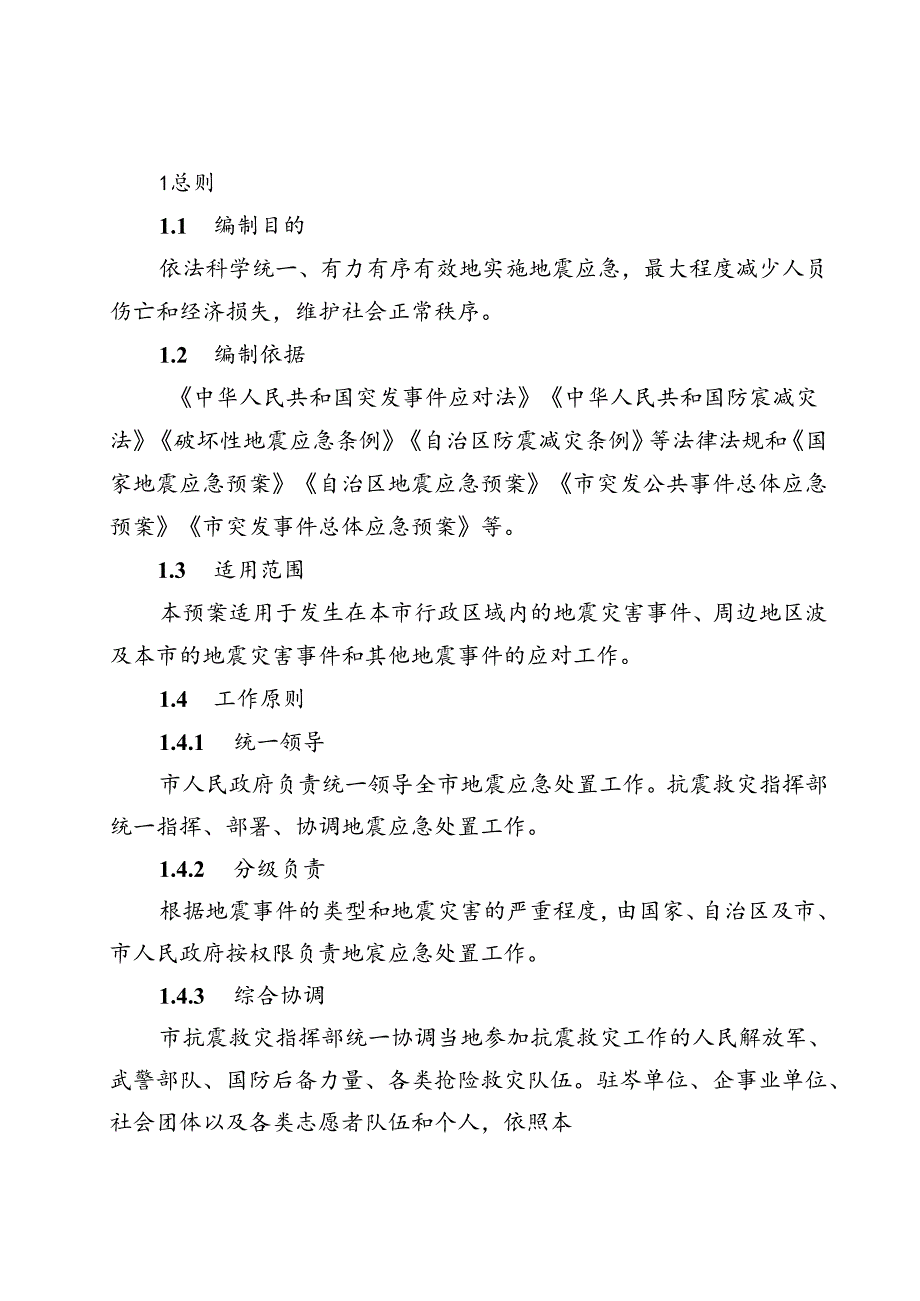 1总则
1.1 编制目的
依法科学统一、有力有序有效地实施地震应急，最大程度减少人员
伤亡和经济损失，维护社会正常秩序。
1.2 编制依据
《中华人民共和国突发事件应对法》《中华人民共和国防宸减灾
法》《破坏性地震应急条例》《自治区防震减灾条例》等法律法规和《国
家地震应急预案》《自治区地震应急预案》《市突发公共事件总体应急
预案》《市突发事件总体应急预案》等。
1.3 适用范围
本预案适用于发生在本市行政区域内的地震灾害事件、周边地区波
及本市的地震灾害事件和其他地震事件的应对工作。
1.4 工作原则
1.4.1 统一领导
市人民政府负责统一领导全市地震应急处置工作。抗震救灾指挥部
统一指挥、部署、协调地震应急处置工作。
1.4.2 分级负责
根据地震事件的类型和地震灾害的严重程度，由国家、自治区及市、
市人民政府按权限负责地宸应急处置工作。
1.4.3 综合协调
市抗震救灾指挥部统一协调当地参加抗震救灾工作的人民解放军、
武警部队、国防后备力量、各类抢险救灾队伍。驻岑单位、企事业单位、
社会团体以及各类志愿者队伍和个人，依照本